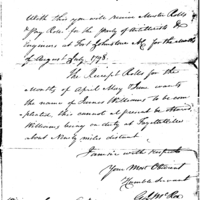 With this you will receive Muster Rolls
& Pay Rolls for the party of Artillerists &
Engineers at Fort Johnston NC for the Months
of August July 1798.
The Receipt Rolls for the
Months of April May & June wants
the name of Thomas Williams to be com
pleated, this cannot at present be
Williams being on duty at Fayetteville
about Ninety miles distant.
I am Sir with respect
Your Most Obedient
Humble Servant